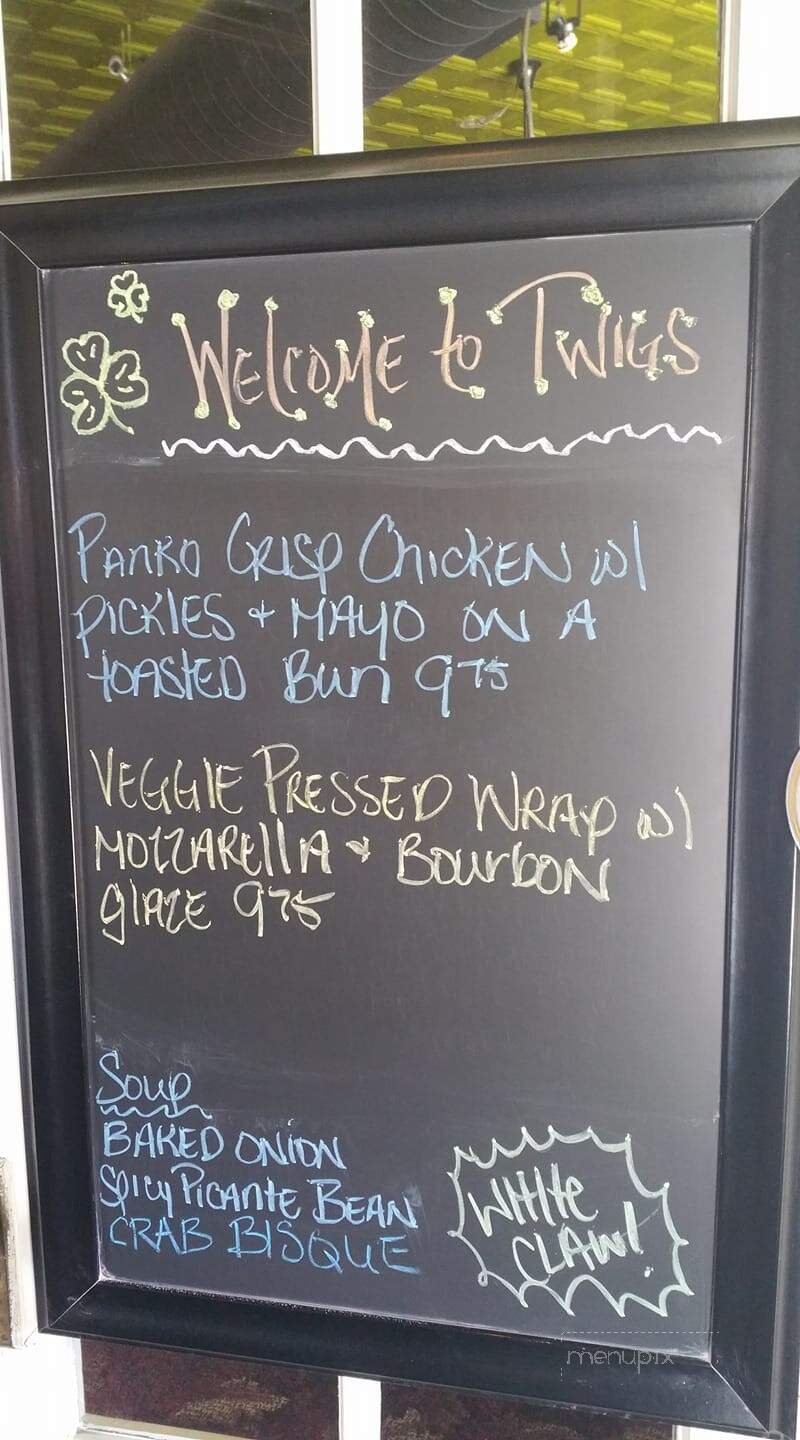 Welcome to Twigs
Panko Crisp Chicken w/
Pickles + Mayo on a
toasted Bun 975
Veggie Pressed Wrap w/
Mozzarella + Bourbon
glaze 975
Soup
Baked Onion
Spicy Picante Bean
Crab Bisque
White
Claw!
menupix